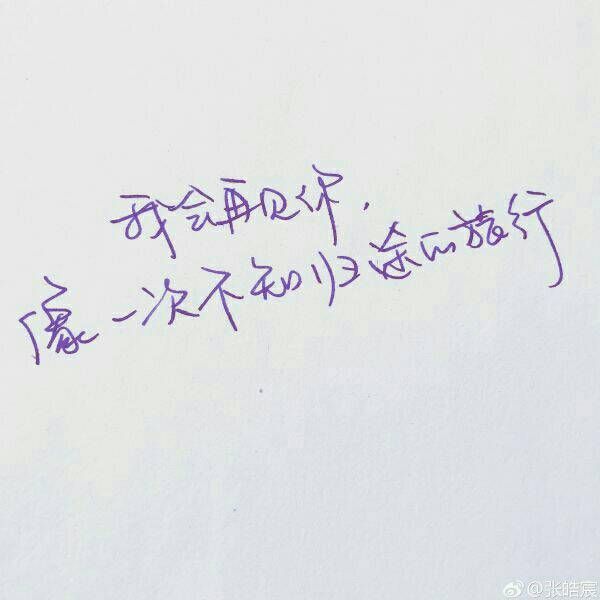 我会再见你,
像一次不知归途的旅行
@张皓宸